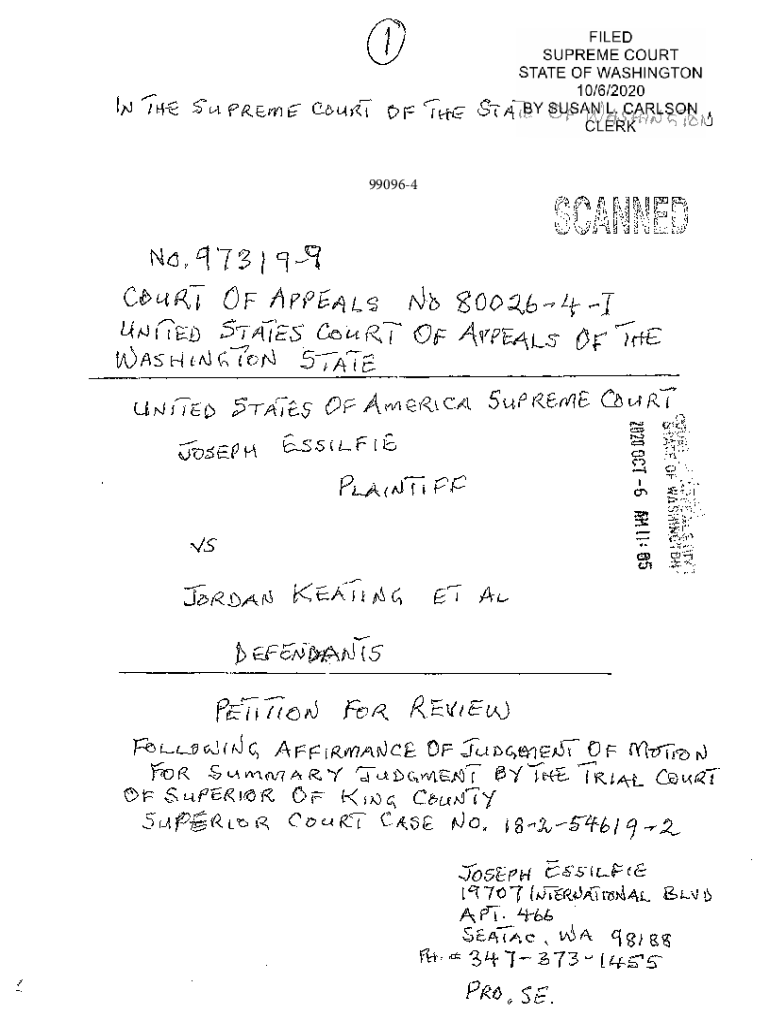 1
FILED
SUPREME COURT
STATE OF WASHINGTON
10/6/2020
BY SUSAN L. CARLSON
CLERK
IN THE SUPREME COURT OF THE STATE OF WASHINGTON
99096-4
SCANNED
No. 97319-9
COURT OF APPEALS No 80026-4-I
UNITED STATES COURT OF APPEALS OF THE
WASHINGTON STATE
UNITED STATES OF AMERICA SUPREME COURT
JOSEPH ESSILFIE
PLAINTIFF
2020 OCT -6 AM 11:05
STATE OF WASHINGTON
VS
JORDAN KEATING ET AL
DEFENDANTS
PETITION FOR REVIEW
FOLLOWING AFFIRMANCE OF JUDGEMENT OF MOTION
FOR SUMMARY JUDGMENT BY THE TRIAL COURT
OF SUPERIOR OF KING COUNTY
SUPERIOR COURT CASE NO. 18-2-54619-2
JOSEPH ESSILFIE
19707 INTERNATIONAL BLVD
APT. 466
SEATAC, WA 98188
PH. # 347-373-1455
PRO. SE.